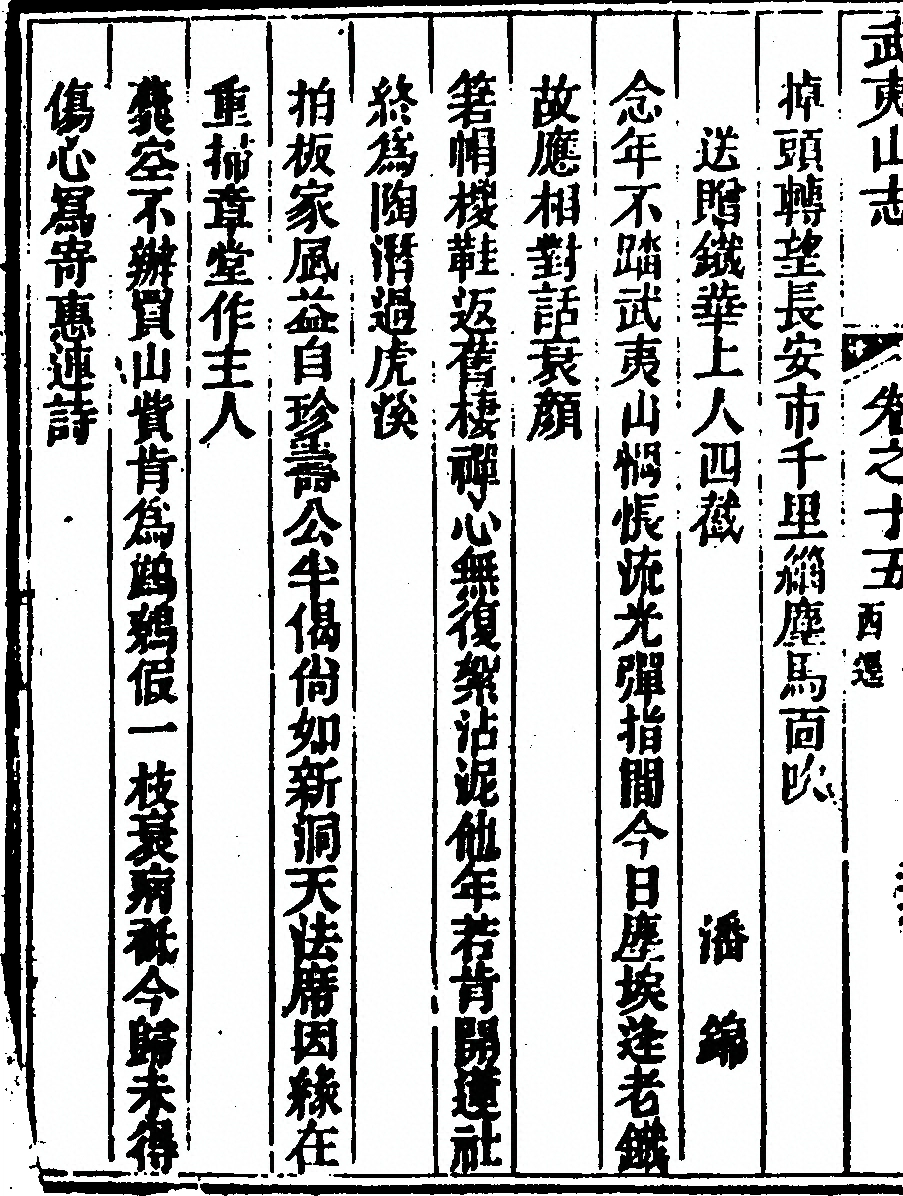 武夷山志　卷之十五　西遷
掉頭轉望長安市千里緇塵馬面吹
送贈鐵華上人四截　潘錦
念年不踏武夷山惆悵流光彈指間今日塵埃逢老鐵
故應相對話衰顏
箬帽椶鞋返舊棲禪心無復絮沾泥他年若肯開蓮社
終爲陶潛過虎溪
拍板家風益自珍壽公半偈尙如新洞天法席因緣在
重掃章堂作主人
囊空不辦買山貲肯爲鷦鷯假一枝衰病秪今歸未得
傷心爲寄惠連詩